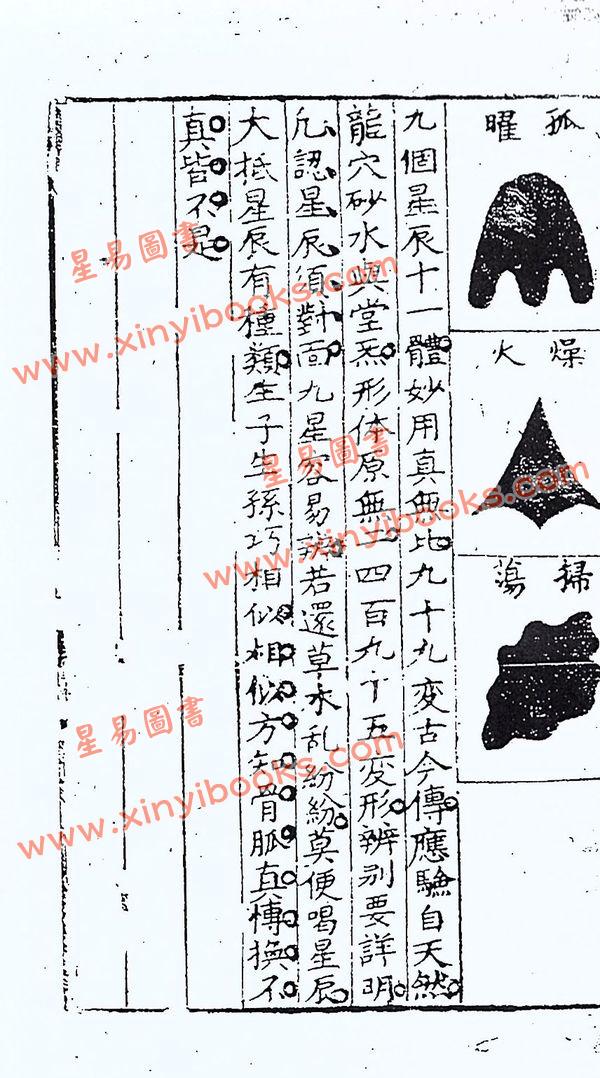 孤曜
燥火
掃蕩
九個星辰十一體妙用真無比九十九変古今傳應驗自天然
龍穴砂水與堂炁形体原無二四百九十五变形辨别要詳明
凢認星辰須對面九星容易辨若還草木乱紛紛莫便喝星辰
大抵星辰有種類生子生孫巧相似相似方知骨脈真博換不
真皆不是
星易圖書
www.xinyibooks.com
星易圖書
www.xinyibooks.com
星易圖書
www.xinyibooks.com